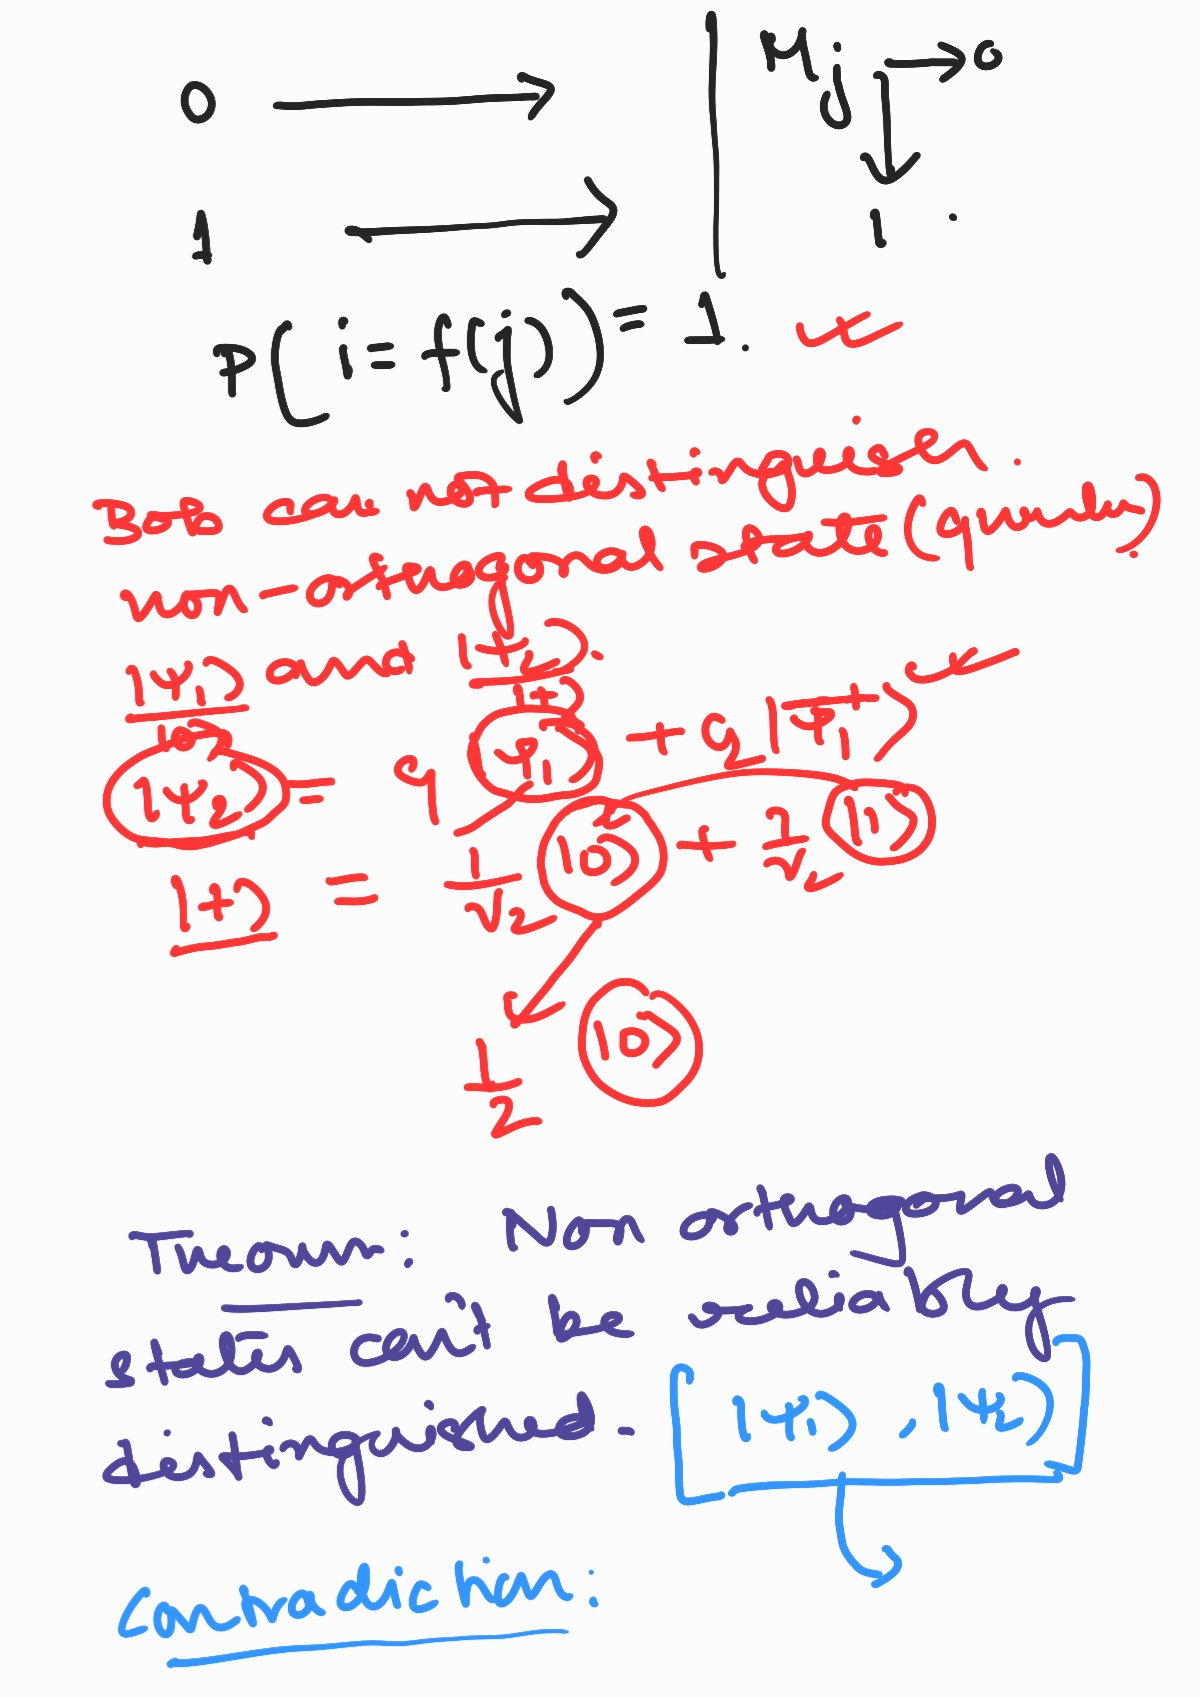 0 ⟶ | Mj → 0
1 ⟶ ↓ 1 .
P(i = f(j)) = 1. ✓
Bob can not distinguish.
non-orthogonal state (quantum).
|ψ₁⟩ and |ψ₂⟩.
|0⟩ |+⟩
|ψ₂⟩ = |ψ₁⟩ + |ψ₁⊥⟩ ✓
|+⟩ = 1/√2 |0⟩ + 1/√2 |1⟩
1/2 |0⟩
Theorem: Non orthogonal
states can't be reliably
distinguished. [|ψ₁⟩, |ψ₂⟩]
Contradiction: